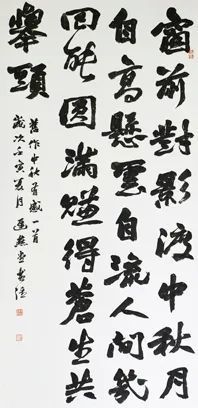 窗前對影渡中秋月
自高懸雲自流人間幾
回能圓滿賺得蒼生共
舉頭
舊作中秋有感一首
歲次壬寅夏月